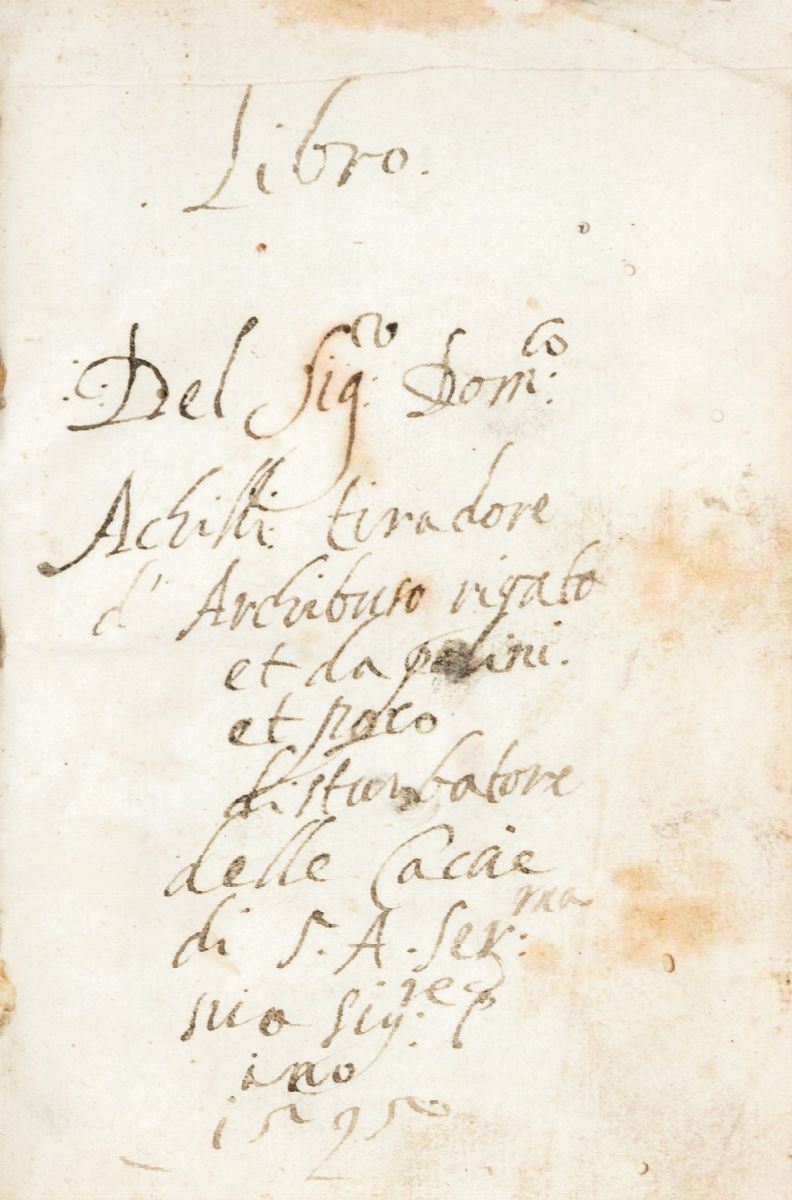 Libro.
Del Sig:ro Dom:co
Achilli tiradore
d' Archibuso rigato
et da palini.
et poco
disturbatore
delle Caccie
di S. A. Ser:ma
suo Sig:re p
ano
1595